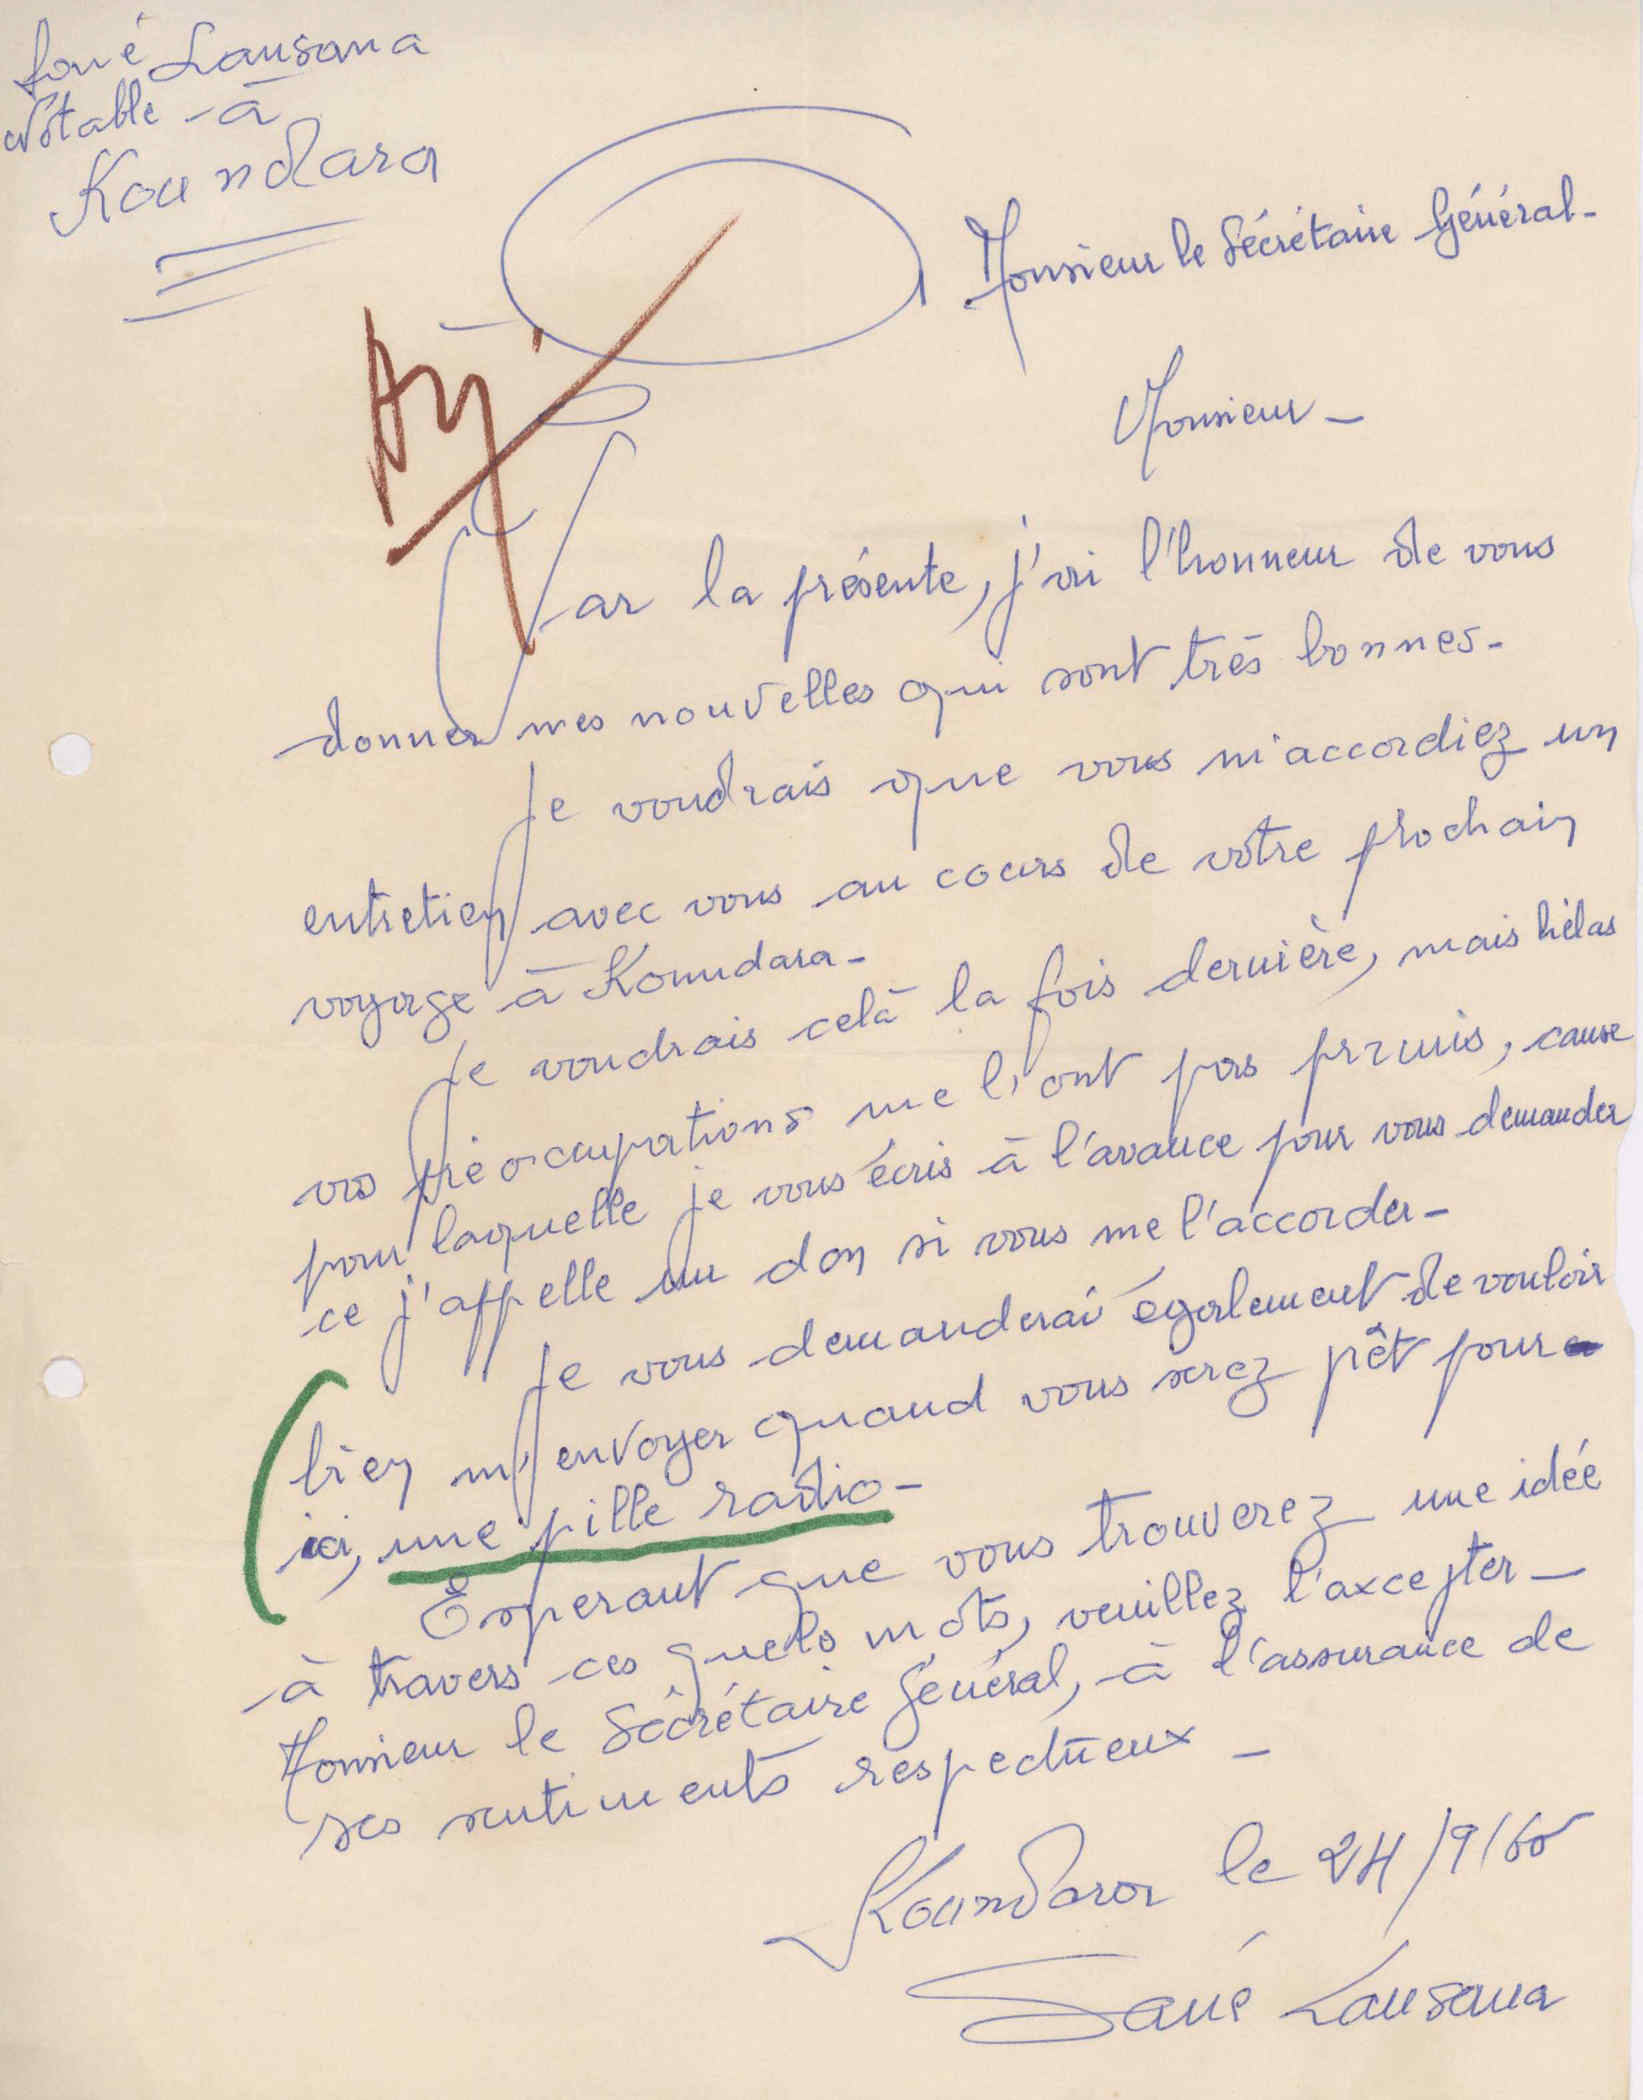 Sané Lansana
Notable à
Koundara
Monsieur le Sécrétaire Général-
Monsieur -
Par la présente, j'ai l'honneur de vous
donner mes nouvelles qui sont très bonnes-
Je voudrais que vous m'accordiez un
entretien avec vous au cours de votre prochain
voyage à Koundara-
Je voudrais celà la fois dernière, mais hélas
vos préoccupations me l'ont pas prmis, cause
pour laquelle je vous écris à l'avance pour vous demander
ce j'appelle un don si vous me l'accorder-
Je vous demanderai également de vouloir
bien m'envoyer quand vous serez pêt pour
ici, une pille radio-
Esperant que vous trouverez une idée
à travers ces quels mots, veuillez l'axcepter-
Monsieur le Sécrétaire Général, à l'assurance de
ses sentiments respectueux -
Koundara le 24/9/60
Sané Lansana